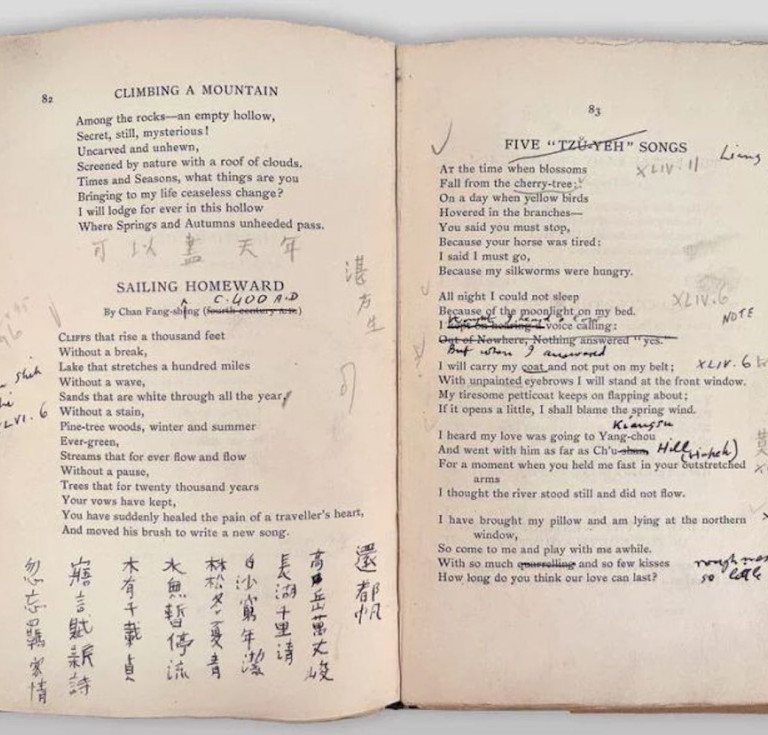 82
CLIMBING A MOUNTAIN
Among the rocks—an empty hollow,
Secret, still, mysterious!
Uncarved and unhewn,
Screened by nature with a roof of clouds.
Times and Seasons, what things are you
Bringing to my life ceaseless change?
I will lodge for ever in this hollow
Where Springs and Autumns unheeded pass.
可以盡天年
湛方生
SAILING HOMEWARD
C. 400 A.D
By Chan Fang-shēng (fourth century A.D.)
CLIFFS that rise a thousand feet
Without a break,
Lake that stretches a hundred miles
Without a wave,
Sands that are white through all the year,
Without a stain,
Pine-tree woods, winter and summer
Ever-green,
Streams that for ever flow and flow
Without a pause,
Trees that for twenty thousand years
Your vows have kept,
You have suddenly healed the pain of a traveller's heart,
And moved his brush to write a new song.
XLVI. 6
還都帆
高岳萬丈峻
長湖千里清
白沙窮年潔
林松冬夏青
水無暫停流
木有千載貞
寤言賦新詩
忽忘羈客情
83
FIVE "TZŬ-YEH" SONGS
Liang
XLIV. 11
AT the time when blossoms
Fall from the cherry-tree:
On a day when yellow birds
Hovered in the branches—
You said you must stop,
Because your horse was tired:
I said I must go,
Because my silkworms were hungry.
All night I could not sleep
XLIV. 6
Because of the moonlight on my bed.
NOTE
thought I heard a
I kept on hearing a voice calling:
Out of Nowhere, Nothing answered "yes."
But when I answered
I will carry my coat and not put on my belt;
XLIV. 6
With unpainted eyebrows I will stand at the front window.
My tiresome petticoat keeps on flapping about;
If it opens a little, I shall blame the spring wind.
Kiangsu
I heard my love was going to Yang-chou
And went with him as far as Ch'u-shan.
Hill
For a moment when you held me fast in your outstretched
arms
I thought the river stood still and did not flow.
I have brought my pillow and am lying at the northern
window,
So come to me and play with me awhile.
With so much quarrelling and so few kisses
roughness
so little
How long do you think our love can last?